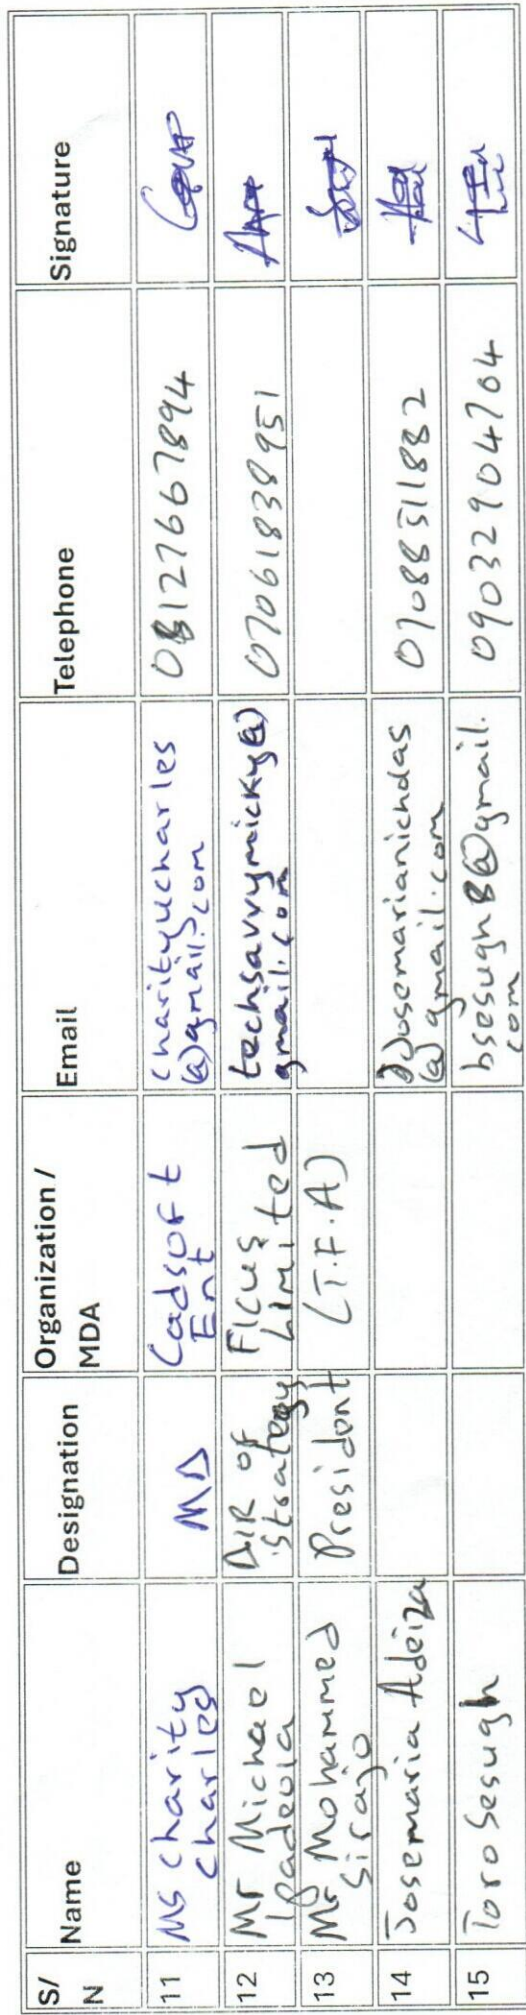 S/
N
Name
Designation
Organization /
MDA
Email
Telephone
Signature
11
Ms Charity
Charles
MD
Cadsoft
Ent
charityucharles
@gmail.com
08127667894
12
Mr Michael
Ipadeola
DIR OF
Strategy
Ficus
Limited
techsavvymicky@
gmail.com
07061838951
13
Mr Mohammed
Sirajo
President
(T.F.A)
14
Josemaria Adeiza
@gmail.com
07088511882
15
Toro Sesugh
bsesugh8@gmail.
com
09032904704